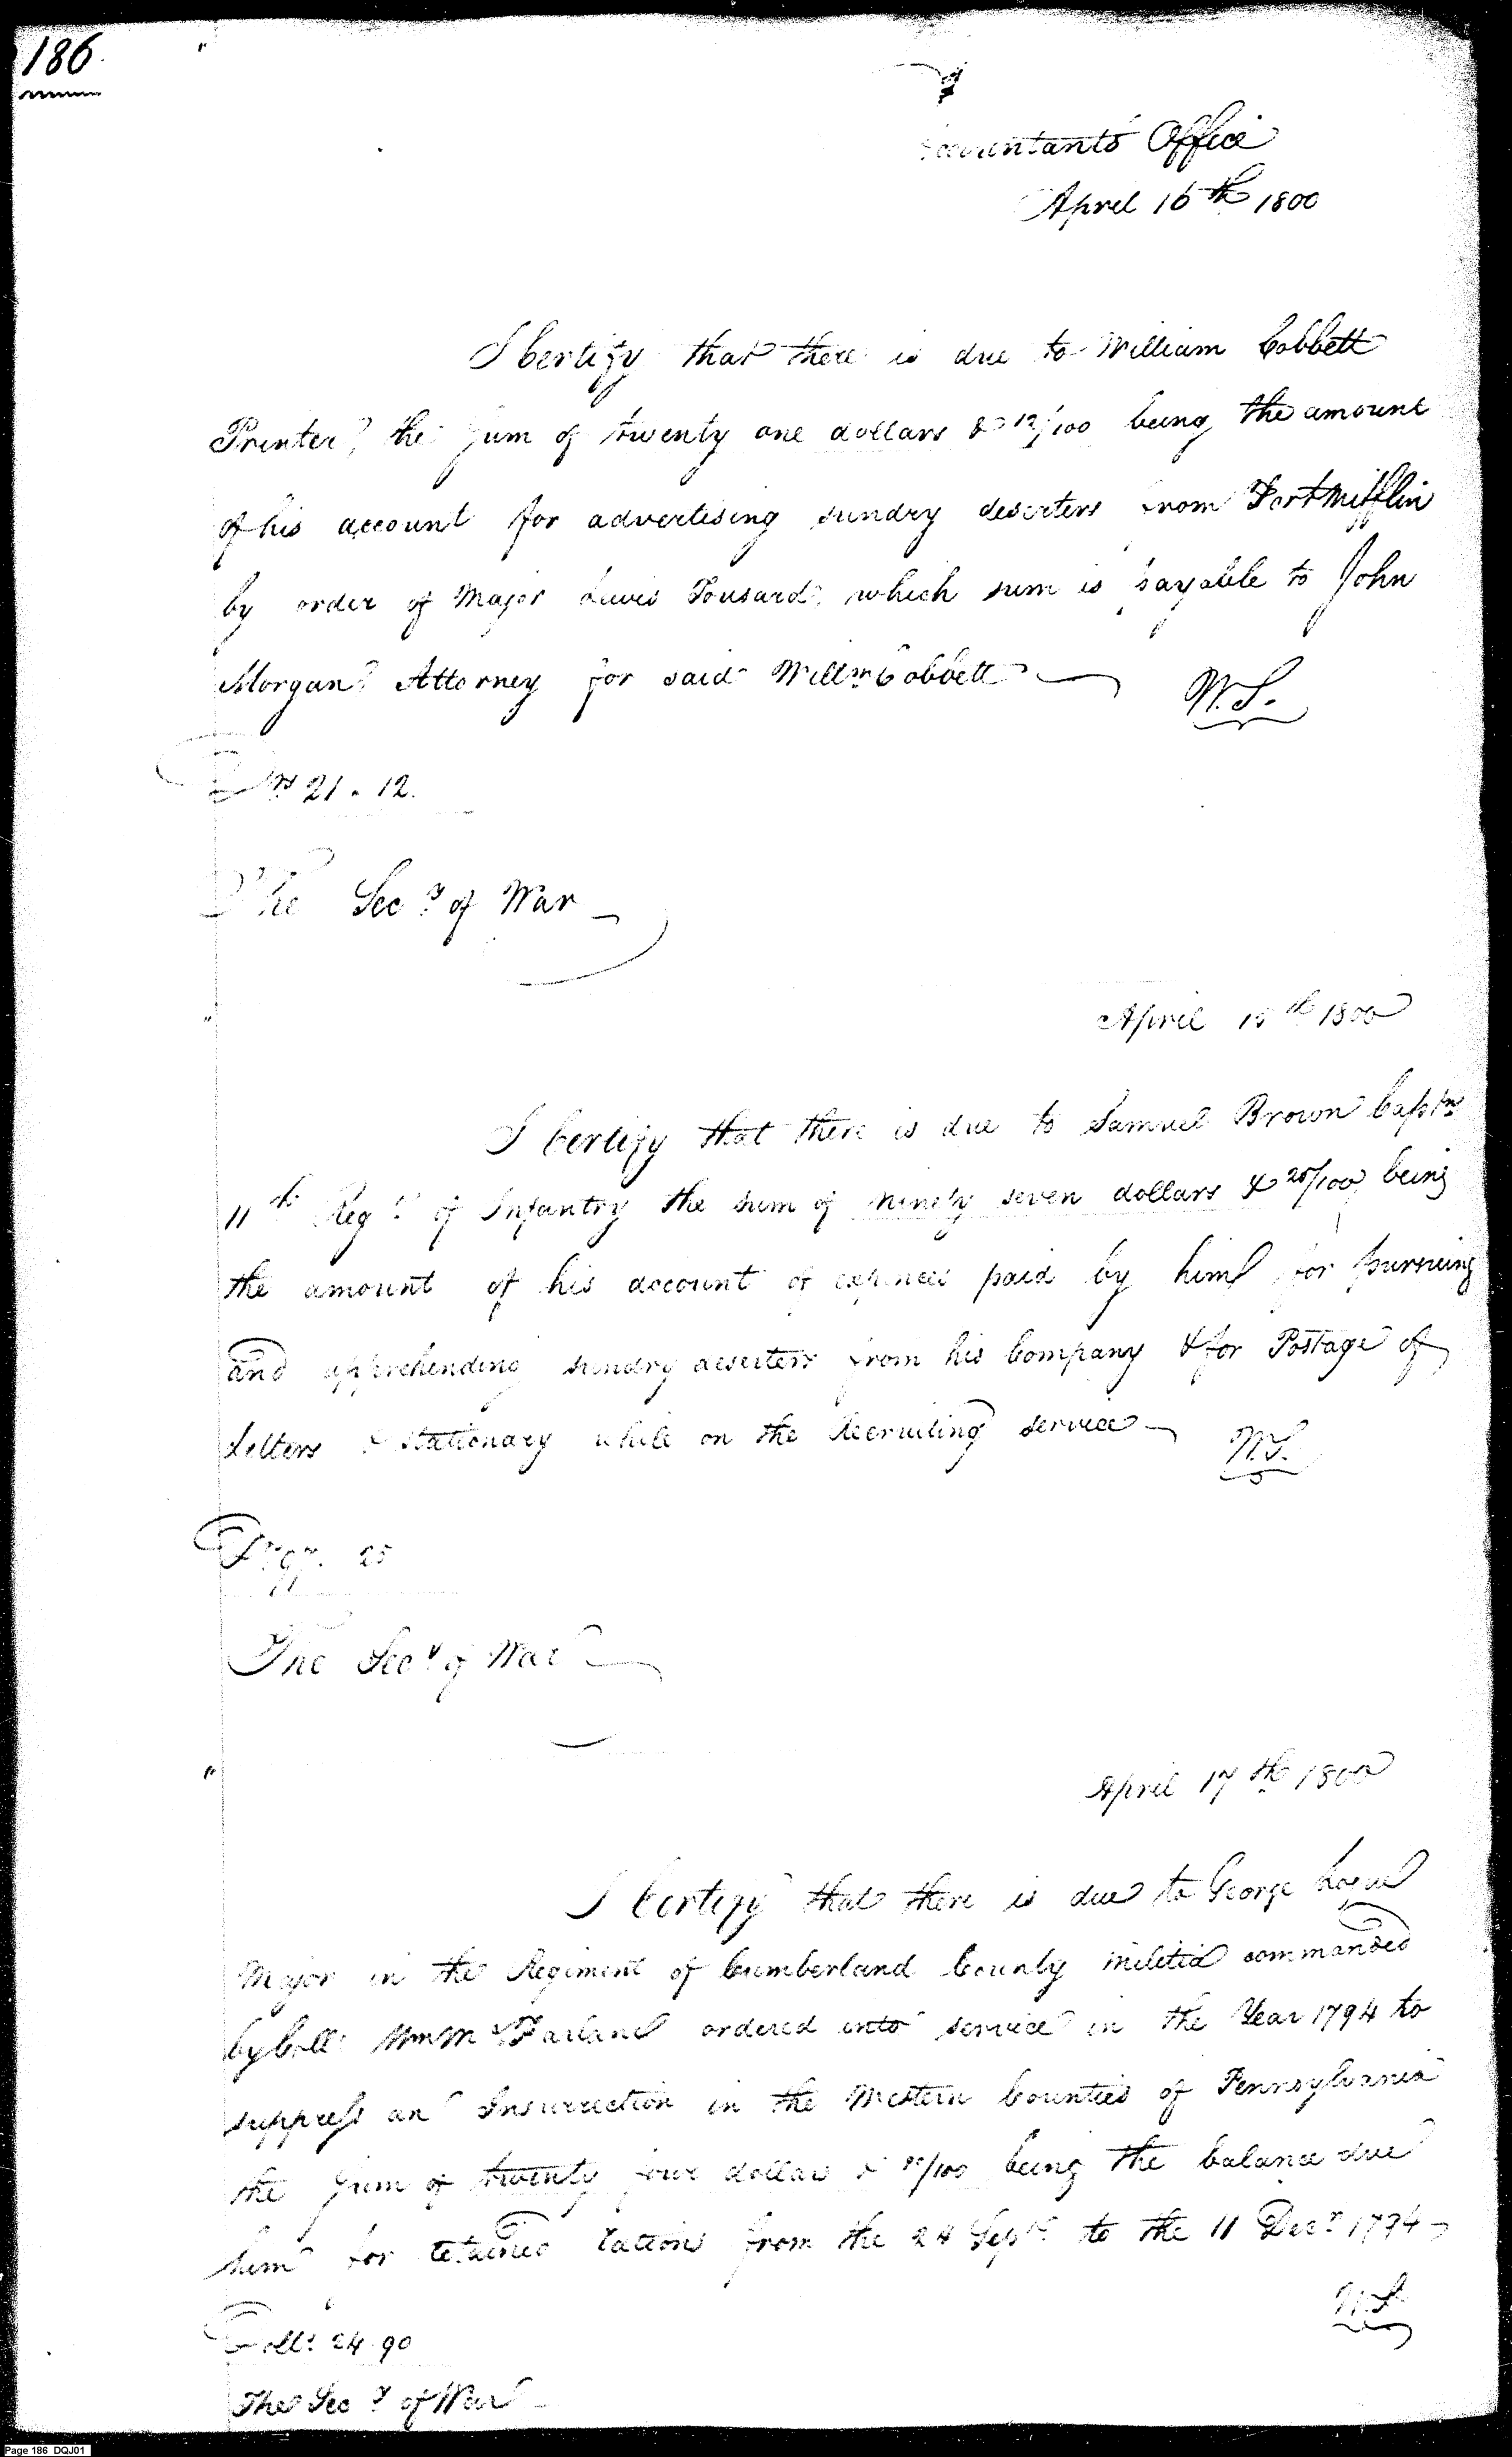 186.
Accountants Office
April 16th 1800
I Certify that there is due to William Cobbett
Printer, the Sum of twenty one dollars & 12/100 being the amount
of his account for advertising sundry deserters from Fort Mifflin
by order of Major Lewis Tousard, which sum is payable to John
Morgan Attorney for said Willm Cobbett
W.S.
Drs 21.12.
The Secy of War
April 15th 1800
I Certify that there is due to Samuel Brown Captn
11th Regt of Infantry the sum of ninety seven dollars & 25/100 being
the amount of his account of expences paid by him for pursuing
and apprehending sundry deserters from his Company & for Postage of
Letters & Stationary while on the Recruiting service
W.S.
97. 25
The Secy of War
April 17th 1800
I Certify that there is due to George Logue
Major in the Regiment of Cumberland County Militia commanded
by Coll: Wm McFarland ordered into service in the Year 1794 to
suppress an Insurrection in the Western Counties of Pennsylvania
the Sum of twenty four dollars & 90/100 being the balance due
him for retained rations from the 24 Sepr to the 11 Decr 1794
W.S.
Dolls 24.90
The Secy of War
Page 186 DQJ01